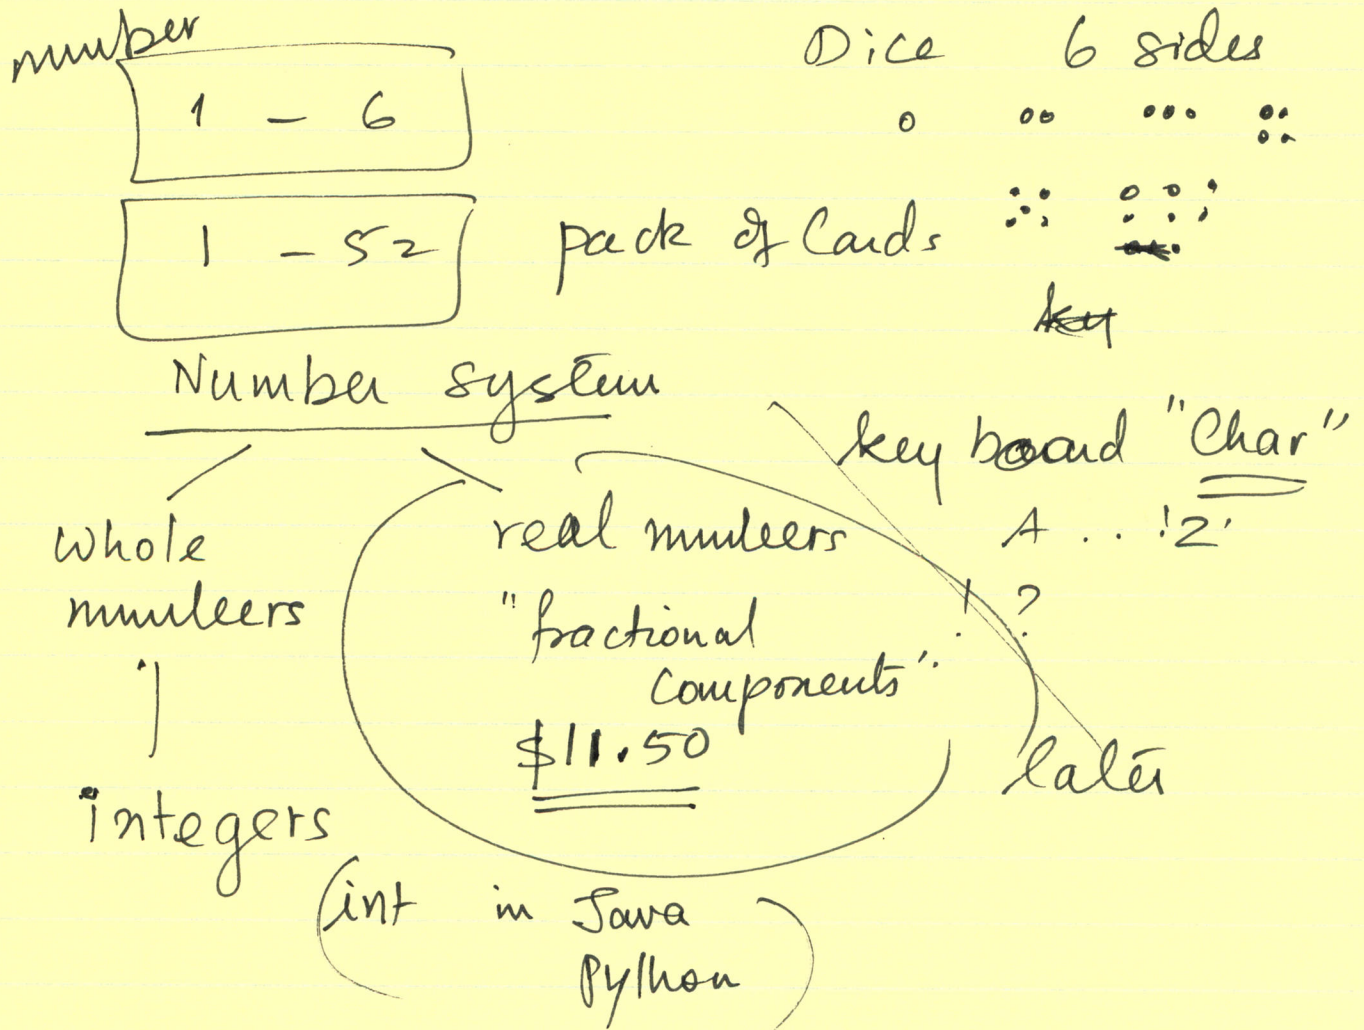 number
Dice 6 sides
1 - 6
1 - 52 pack of Cards
key
Number system
key board "Char"
A . . 'Z'
! ?
whole numbers
real numbers
"fractional components"
$11.50
later
integers
(int in Java
Python)